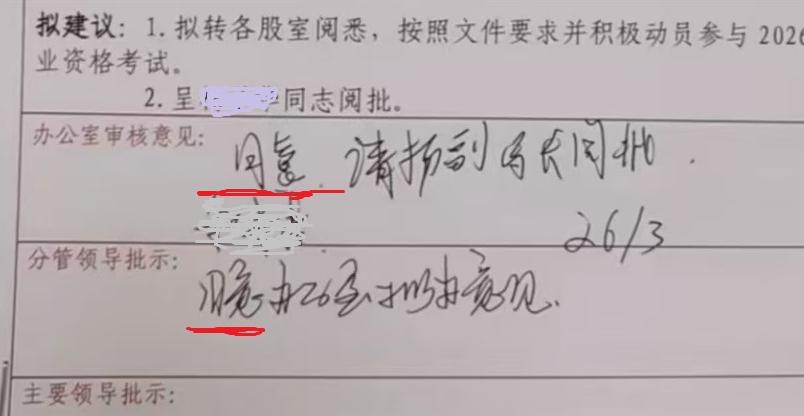 拟建议：1. 拟转各股室阅悉，按照文件要求并积极动员参与 2026
业资格考试。
2. 呈 同志阅批。
办公室审核意见：
同意 请杨副局长阅批.
26/3
分管领导批示：
同意办公室拟办意见.
主要领导批示：